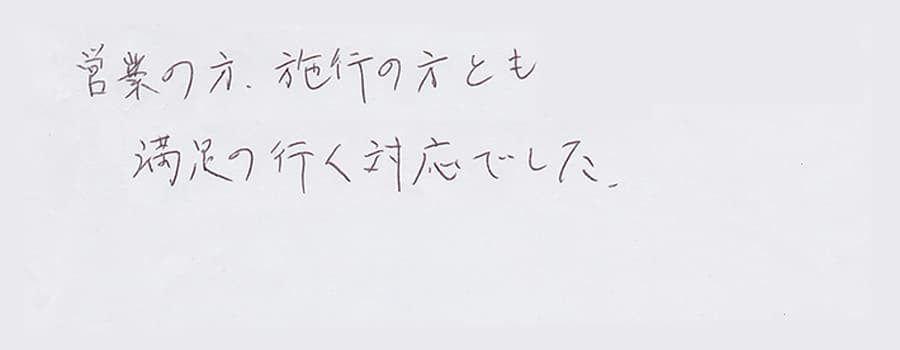 営業の方、施行の方とも
満足の行く対応でした。